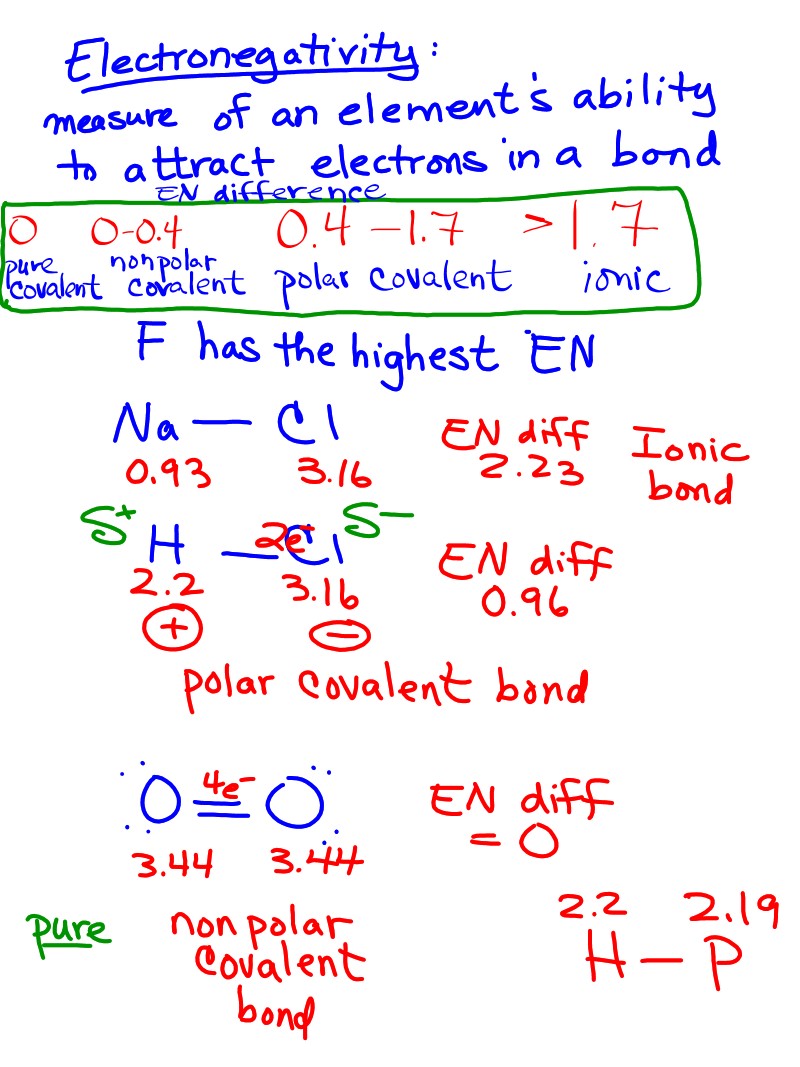 Electronegativity:
measure of an element's ability
to attract electrons in a bond
EN difference
0 0-0.4 0.4-1.7 >1.7
pure covalent nonpolar covalent polar covalent ionic
F has the highest EN
Na — Cl EN diff 2.23 Ionic bond
0.93 3.16
δ+ H — 2e⁻ Cl δ—
2.2 3.16 EN diff 0.96
+ −
polar covalent bond
O 4e⁻ = O EN diff = 0
3.44 3.44
pure nonpolar covalent bond
2.2 2.19
H — P